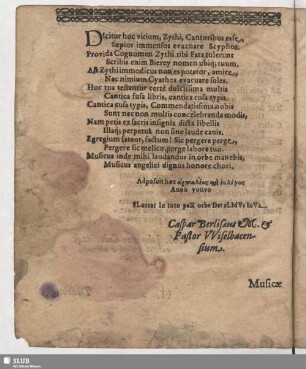 Dicitur hoc vicium, Zythi, Cantoribus esse,
Sæpius immensos evacuare Scyphos.
Provida Cognomen Zythi tibi Fata tulerunt
Scribis enim Bierey nomen ubiq; tuum,
Ast Zythi immodicus non es potator, amice,
Nec nimium Cyathos evacuare soles.
Hoc tua testantur certè dulcissima multis
Cantica fusa libris, cantica cusa typis.
Cantica cusa typis, Commendatissima nobis
Sunt nec non multis concelebranda modis,
Nam petis ex sacris insignia dicta libellis
Illaq; perpetuâ non sine laude canis.
Egregium sateor, factum! Sic pergere perge,
Pergere sic melico, perge labore tuo.
Musicus inde mihi laudandus in orbe manebis,
Musicus angelici dignus honore chori.
Anno
In toto paX orbe
Caspar Berlisaus M. &
Pastor VViselbacen-
sium.
Musicæ
SLUB
Wir führen Wissen.